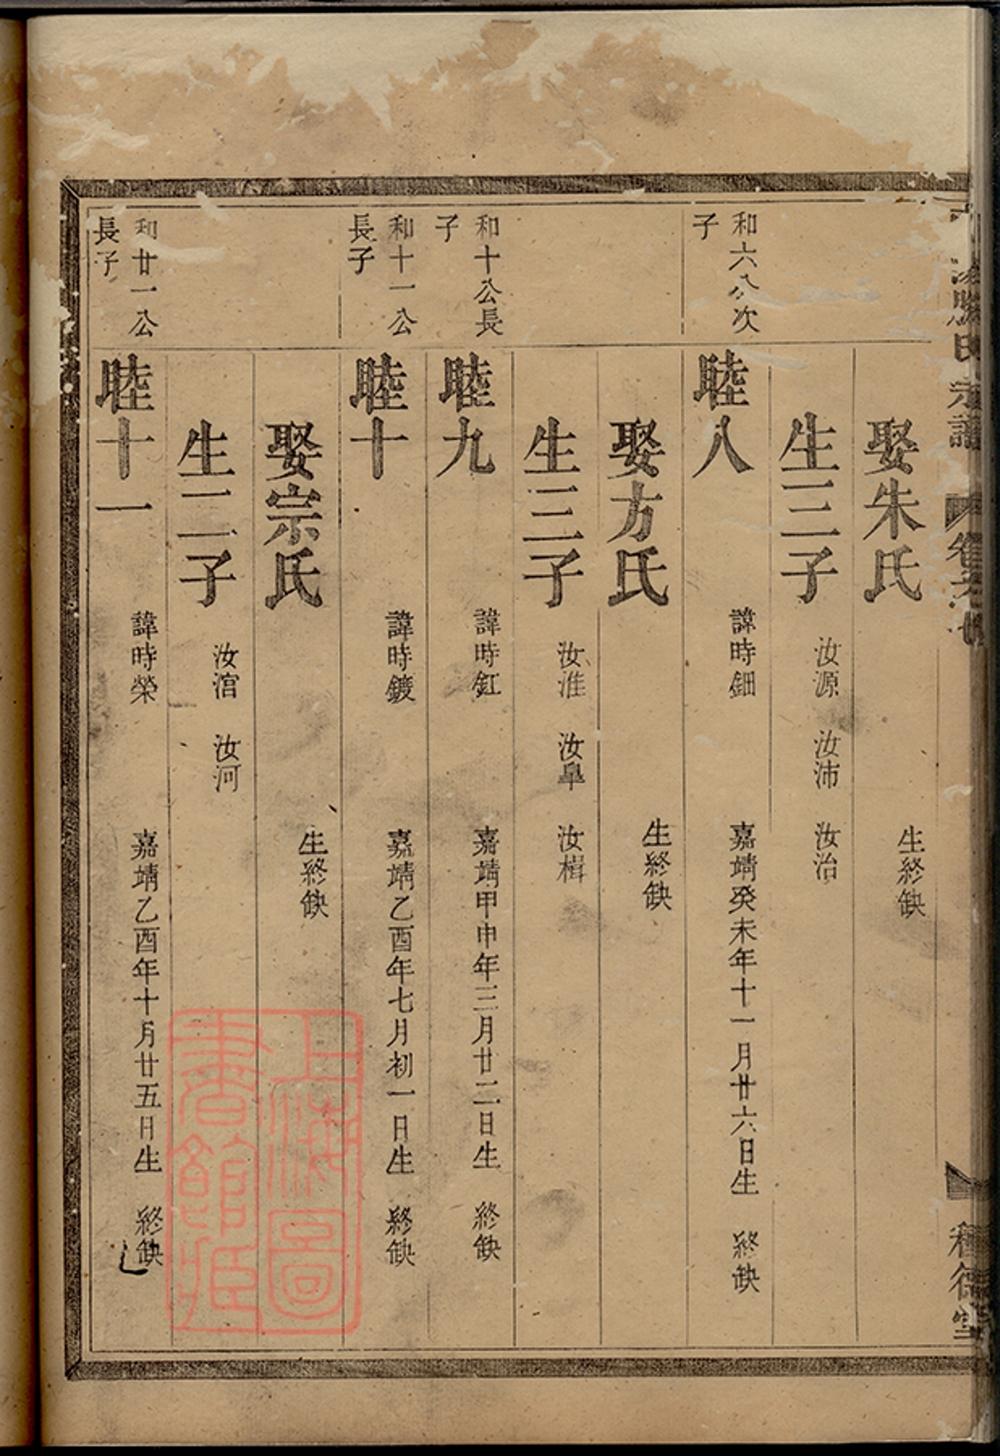 氏宗譜
卷之
種德堂
娶朱氏 生終缺
生三子 汝源 汝沛 汝治
和六公次子
睦八 諱時鈿 嘉靖癸未年十一月廿六日生 終缺
娶方氏 生終缺
生三子 汝淮 汝阜 汝楫
和十公長子
睦九 諱時釭 嘉靖甲申年三月廿二日生 終缺
和十一公長子
睦十 諱時鍍 嘉靖乙酉年七月初一日生 終缺
娶宗氏 生終缺
生二子 汝涫 汝河
和廿一公長子
睦十一 諱時榮 嘉靖乙酉年十月廿五日生 終缺
上海圖書館藏